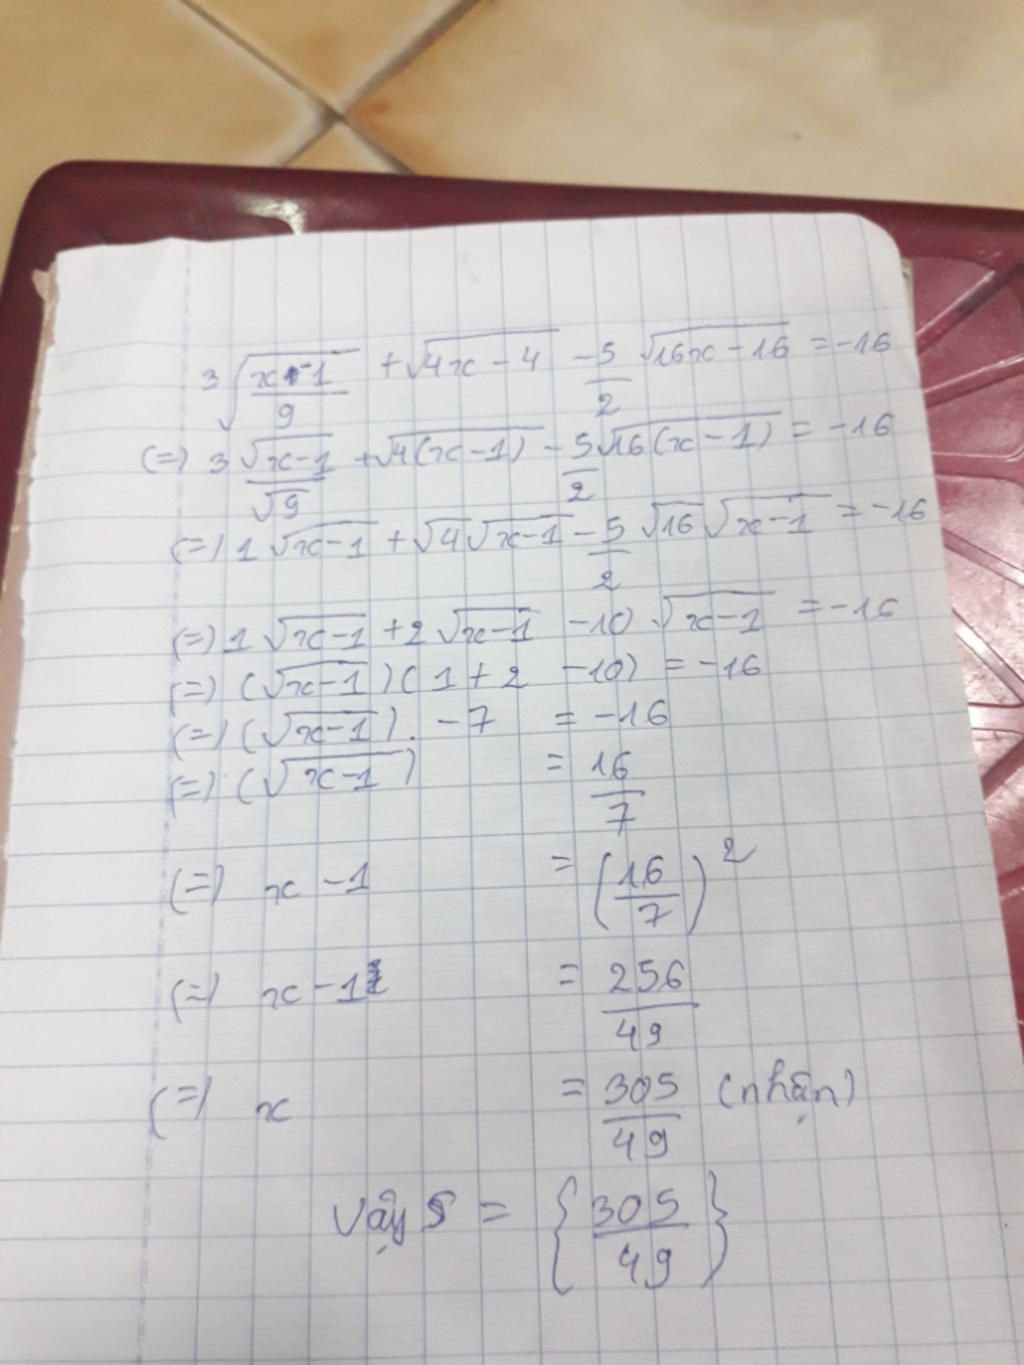 3√((x-1)/9) + √(4x-4) - 5/2 √(16x-16) = -16
(=) 3 √(x-1)/√9 + √(4(x-1)) - 5/2 √(16(x-1)) = -16
(=) 1 √(x-1) + √4 √(x-1) - 5/2 √16 √(x-1) = -16
(=) 1 √(x-1) + 2 √(x-1) - 10 √(x-1) = -16
(=) (√(x-1)) (1 + 2 - 10) = -16
(=) (√(x-1)) . -7 = -16
(=) (√(x-1)) = 16/7
(=) x - 1 = (16/7)²
(=) x - 1 = 256/49
(=) x = 305/49 (nhận)
Vậy S = {305/49}